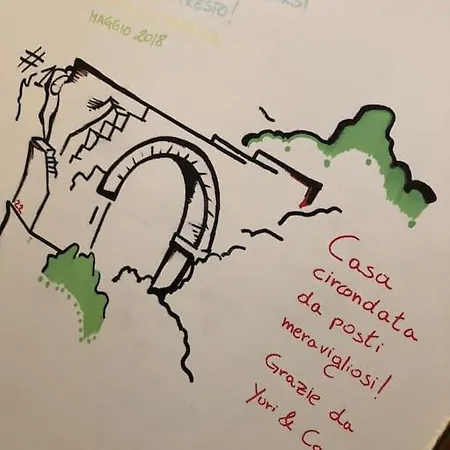 PRESTO!
MAGGIO 2018
#
22
Casa
circondata
da posti
meravigliosi!
Grazie da
Yuri &